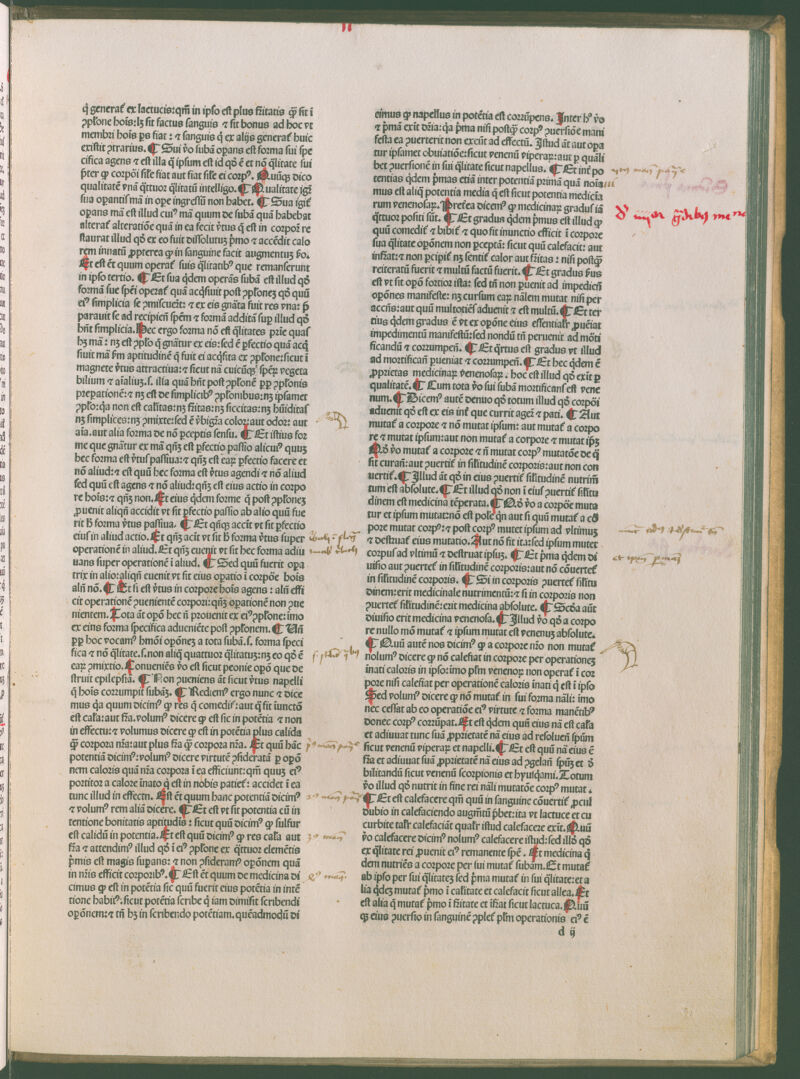 q̃ generat᷑ ex lactucis:qm̃ in ip̃o eſt plus fr̃itatis q̃ ſit ĩ
ꝯplone hoĩs:lꝫ ſit factus ſanguis ⁊ ſit bonus ad hoc vt
membri hoĩs ꝑs fiat: ⁊ ſanguis q̃ ex alijs generat᷑ huic
exiſtit ꝯtrarius. ¶ Sui ṽo ſubãm opans eſt forma ſui ſpe
cifica agens ⁊ eſt illa q̃ ipſum eſt id qḋ ẽ ⁊ nõ q̃litate ſui
p̃ter ꝙ corpori ſiĩle fiat aut fiat ſiĩle ei corpꝰ. ¶ Nũq̃ȝ dico
qualitatẽ vnã q̃ttuor q̃litatũ intelligo. ¶ Qualitate igr̃
ſua opantis mã in ope ingreſſũ non habet. ¶ Sua igit᷑
opans mã eſt illud cuiꝰ mã quum de ſubã quã habebat
alterat᷑ alteratiõe quã in ea fecit ṽtus q̃ eſt in corpore re
ſtaurat illud qḋ ex eo fuit diſſolutũ ṗmo ⁊ accẽdit calo
rem innatũ ꝓpterea ꝙ in ſanguine facit augmentũ ṽo.
Et eſt ẽt quum operat᷑ ſuis q̃litatibꝰ que remanſerunt
in ipſo tertio. ¶ Et ſua q̃dem operãs ſubã eſt illud qḋ
formã ſue ſpẽi operat᷑ quã acq̃ſiuit poſt ꝯplonẽ qḋ quũ
eiꝰ ſimplicia ſe ꝯmiſcuer̃t: ⁊ ex eis gnãta fuit res vna: p̃
parauit ſe ad recipien̄ ſpẽm ⁊ formã additã ſup illud qḋ
hñt ſimplicia. Hec ergo forma nõ eſt q̃litates pr̃ie quas
hȝ mã: nȝ eſt ꝯplo q̃ gnãtur ex eis: ſed ẽ ꝑfectio quã acq̃
ſiuit mã ẜm aptitudinẽ q̃ fuit ei acq̃ſita ex ꝯplone: ſicut ĩ
magnete ṽtus attractiua: ⁊ ſicut nã cuicũqꝫ ſpẽꝝ vegeta
bilium ⁊ aĩaliuȝ. ſ. illa quã hñt poſt ꝯplonẽ ꝓp ꝯplonis
preparationẽ: ⁊ nȝ eſt de ſimplicibꝰ ꝯplonibus: nȝ ipſamet
ꝯplo: q̃a non eſt caliitas: nȝ fr̃itas: nȝ ſiccitas: nȝ hũiditas
nȝ ſimplices: nȝ ꝯmixte: ſed ẽ ṽbigr̃a color: aut odor: aut
aĩa. aut alia forma de nõ ꝑceptis ſenſu. ¶ Et iſtius for
me que gnãtur ex mã qñȝ eſt ꝑfectio paſſio alicuꝰ quuȝ
hec forma eſt ṽtus paſſiua: ⁊ qñȝ eſt eaꝝ ꝑfectio facere et
nõ aliud: ⁊ eſt quũ hec forma eſt ṽtus agendi ⁊ nõ aliud
ſed quũ eſt agens ⁊ nõ aliud: qñȝ eſt eius actio in corpo
re hoĩs: ⁊ qñȝ non. Et eius q̃dem forme q̃ poſt ꝯplonẽȝ
ꝓuenit aliqñ accidit vt ſit ꝑfectio paſſio ab alio quũ fue
rit ḣ forma ṽtus paſſiua. ¶ Et qñqꝫ accĩt vt ſit ꝑfectio
eius in aliud actio. Et qñȝ acĩt vt ſit ḣ forma ṽtus ſuper
operationẽ in aliud. Et qñȝ cuenit vt ſit hec forma adiu
uans ſuper operationẽ ĩ aliud. ¶ Sed quũ fuerit opa
trix in alio: aliqñ cuenit vt ſit eius opatio ĩ corpõe hoĩs
aliñ nõ. ¶ Et ſi eſt ṽtus in corpore hoĩs agens: aliñ effi
cit operationẽ ꝯuenientẽ corpori: qñȝ opationẽ non ꝯue
nientem. Tota ãt opõ hec ñ ꝓuenit ex eiꝰ ꝯplone: imo
ex eius forma ſpecifica adueniẽte poſt ꝯplonem. ¶ Uñ
ꝓp hoc vocamꝰ hmõi opõneȝ a tota ſubã. ſ. forma ſpeci
fica ⁊ nõ q̃litate. ſ. non aliq̃ quattuor q̃litatuȝ: nȝ eo qḋ ẽ
eaꝝ ꝯmixtio. Conueniẽs ṽo eſt ſicut peonie opõ que de
ſtruit epilepſiã. ¶ Non ꝯueniens ãt ſicut ṽtus napelli
q̃ hoĩs corrumpit ſubãȝ. ¶ Rediemꝰ ergo nunc ⁊ dice
mus q̃a quum dicimꝰ ꝙ res q̃ comedit᷑: aut q̃ ſit ĩunctõ
eſt cal̃a: aut fr̃a. volumꝰ dicere ꝙ eſt ſic in potẽtia ⁊ non
in effectu: ⁊ volumus dicere ꝙ eſt in potẽtia plus calida
q̃ corpora nr̃a: aut plus fr̃a q̃ corpora nr̃a. Et quũ hãc
potentiã dicimꝰ: volumꝰ dicere virtutẽ ꝯſideratã ꝑ opõ
nem caloris quã nr̃a corpora ĩ ea efficiunt: qm̃ quuȝ eiꝰ
portitor a calore ĩnato q̃ eſt in nobis patiet᷑: accidet ĩ ea
tunc illud in effectu. Eſt ẽt quum hanc potentiã dicimꝰ
⁊ volum̃ rem aliã dicere. ¶ Et eſt vt ſit potentia cũ in
tentione bonitatis aptitudiis: ſicut quũ dicimꝰ ꝙ ſulfur
eſt calidũ in potentia. Et eſt quũ dicimꝰ ꝙ res cal̃a aut
fr̃a ⁊ attendimꝰ illud qḋ ĩ eiꝰ ꝯplone ex q̃ttuor elemẽtis
ṗmis eſt magis ſupans: ⁊ non ꝯſideram̃ opõnem quã
in nr̃is efficit corporibꝰ. ¶ Eſt ẽt quum de medicina di
cimus ꝙ eſt in potẽtia ſic quũ fuerit eius potẽtia in intẽ
tione habitꝰ: ſicut potẽtia ſcribe q̃ iam dimiſit ſcribendi
opõnem: ⁊ tñ hȝ in ſcribendo potẽtiam. quẽadmodũ di
cimus ꝙ napellus in potẽtia eſt corrũpens. Inter hꝰ ṽo
⁊ ṗmã exit dr̃ia: q̃a ṗma niſi poſtq̃ corpꝰ ꝯuerſionẽ mani
feſta ea ꝯuerterit non excũt ad effectũ. Iſtud ãt aut opa
tur ipſamet obuiatiõe: ſicut venenũ viperaꝝ: aut ꝑ quali
bet ꝯuerſionẽ in ſui q̃litate ſicut napellus. ¶ Et int᷑ po
tentias q̃dem ṗmas etiã inter potentiã ṗimã quã noĩa
mus eſt aliq̃ potentia media q̃ eſt ſicut potentia medicĩa
rum venenoſaꝝ. Preteea dicem̃ ꝙ medicinaꝝ gradus iã
q̃ttuor poſiti ſũt. ¶ Et gradus q̃dem ṗmus eſt illud ꝙ
quũ comedit᷑ ⁊ bibit᷑ ⁊ quo fit inunctio efficit ĩ corpore
ſua q̃litate opõnem nõ ꝑceptã: ſicut quũ calefacit: aut
infr̃at: ⁊ non ꝑcipit᷑ nȝ ſentit᷑ calor aut fr̃itas: niſi poſtq̃
reiteratũ fuerit ⁊ multũ factũ fuerit. ¶ Et gradus ẜus
eſt vt ſit opõ fortior iſta: ſed tñ non ꝑuenit ad impedien̄
opõnes manifeſte: nȝ curſum eaꝝ nãlem mutat niſi per
accñs: aut quũ multotiẽs aduenit ⁊ eſt multũ. ¶ Et ter
tius q̃dem gradus ẽ vt ex opõne eius eſſentialr̃ ꝓueiat
impedimentũ manifeſtũ: ſed nondũ tñ perueniт ad mõti
ficandũ ⁊ corrumpeñ. ¶ Et q̃rtus eſt gradus vt illud
ad mortificañ ꝑueniat ⁊ corrumpeñ. ¶ Et hec q̃dem ẽ
ꝓprietas medicinaꝝ venenoſaꝝ. hoc eſt illud qḋ exĩt ꝑ
qualitatẽ. ¶ Cum tota ṽo ſui ſubã mortificans eſt vene
num. ¶ Dicemꝰ autẽ denuo qḋ totum illud qḋ corpõi
aduenit qḋ eſt ex eis int᷑ que currit ageȓ ⁊ pati. ¶ Aut
mutat᷑ a corpore ⁊ nõ mutat ipſum: aut mutat᷑ a corpo
re ⁊ mutat ipſum: aut non mutat᷑ a corpore ⁊ mutat ip̃ȝ
Qḋ ṽo mutat᷑ a corpore ⁊ ñ mutat corpꝰ mutatõe de q̃
ſit curañ: aut ꝯuertit᷑ in ſiĩlitudinẽ corporis: aut non con
uertit᷑. ¶ Illud ãt qḋ in eius ꝯuertit᷑ ſiĩlitudinẽ nutrim̃
tum eſt abſolute. ¶ Et illud qḋ non ĩ eiuſ ꝯuertit᷑ ſiĩlitu
dinem eſt medicina tẽperata. ¶ Qḋ ṽo a corpõe muta
tur et ipſum mutat: nõ eſt poſſe q̃n aut ſi quũ mutat᷑ a cõ
pore mutat corpꝰ: ⁊ poſt corpꝰ mutet ipſum ad vltimuȝ
⁊ deſtruat᷑ eius mutatio. Aut nõ ſit ita: ſed ipſum mutet
corpus ad vltimũ ⁊ deſtruat ipſuȝ. ¶ Et ṗma q̃dem di
uiſio aut ꝯuertet᷑ in ſiĩlitudinẽ corporis: aut nõ cõuertet᷑
in ſiĩlitudinẽ corporis. ¶ Si in corporis ꝯuertet᷑ ſiĩlitu
dinem: erit medicinale nutrimentũ: ⁊ ſi in corporis non
ꝯuertet᷑ ſiĩlitudinẽ: erit medicina abſolute. ¶ Scḋa aũt
diuiſio erit medicina venenoſa. ¶ Illud ṽo qḋ a corpo
re nullo mõ mutat᷑ ⁊ ipſum mutat eſt venenuȝ abſolute.
¶ Quũ autẽ nos dicim̃ ꝙ a corpore nr̃o non mutat᷑
nolumꝰ dicere ꝙ nõ calefiat in corpore per operationeȝ
ĩnati caloris in ipſo: imo plim̃ venenoꝝ non operat᷑ ĩ cor
pore niſi calefiat per operationẽ caloris ĩnati q̃ eſt ĩ ipſo
Sed volumꝰ dicere ꝙ nõ mutat᷑ in ſui forma nãli: imo
nec ceſſat ab eo operatiõe eiꝰ virtute ⁊ forma manẽtibꝰ
donec corpꝰ corrũpat. Et eſt q̃dem quũ eius nã eſt cal̃a
et adiuuat tunc ſuã ꝓprietatẽ nã eius ad reſoluen̄ ſpũm
ſicut venenũ viperaꝝ et napelli. ¶ Et eſt quũ nã eius ẽ
fr̃a et adiuuat ſuã ꝓprietatẽ nã eius ad ꝯgelañ ſpũȝ et ḋ
bilitandũ ſicut venenũ ſcorpionis et hyuſq̃ami. Totum
ṽo illud qḋ nutrit in fine rei nãli mutatõe corpꝰ mutat.
¶ Et eſt calefacere qm̃ quũ in ſanguinẽ cõuertit᷑ ꝓcul
dubio in calefaciendo augmẽtũ ṗbet: ita vt lactuce et cu
curbite talr̃ calefaciãt qualr̃ iſtud calefacere exĩt. Quũ
ṽo calefacere dicimꝰ nolumꝰ calefacere iſtud: ſed illḋ qḋ
ex q̃litate rei ꝓuenit eiꝰ remanente ſpẽ. Et medicina q̃
dem nutriẽs a corpore per ſui mutat᷑ ſubam̃. Et mutat᷑
ab ip̃o per ſui q̃litateȝ ſed ṗma mutat᷑ in ſui q̃litate: et a
lia q̃deȝ mutat᷑ ṗmo ĩ calitate et calefacit ſicut allea. Et
eſt alia q̃ mutat᷑ ṗmo ĩ fr̃itate et ĩfr̃at ſicut lactuca. Quũ
qȝ eius ꝯuerſio in ſanguinẽ ꝯplet᷑ plim̃ operationis eiꝰ ẽ
d ij